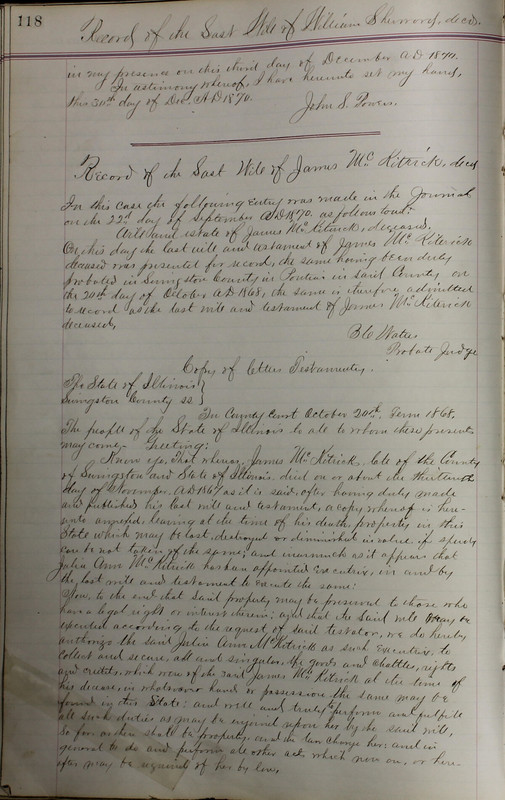 118
Record of the Last Will of William Sherwood, decd.
in my presence on this third day of December A.D. 1870.
In testimony whereof, I have hereunto set my hand,
this 30th day of Dec. A.D. 1870.
John S. Powers.
Record of the Last Will of James McKitrick, decd
In this case the following entry was made in the Journal
on the 22d day of September A.D. 1870. as follows to wit:
estate of James McKitrick, deceased.
On this day the last will and testament of James McKitrick
deceased was presented for record, the same having been duly
probated in Livingston County in Pontiac in said County on
the 20th day of October A.D. 1868, the same is therefore admitted
to record as the last will and testament of James McKitrick
deceased,
Probate Judge
Copy of letters Testamentary.
The State of Illinois
Livingston County ss
In County Court October 20th Term 1868.
The people of the State of Illinois to all to whom these presents
may come, Greeting:
Know ye, That whereas, James McKitrick late of the County
of Livingston and State of Illinois died on or about the thirteenth
day of November, A.D. 1867 as it is said, after having duly made
and published his last will and testament, a copy whereof is here-
unto annexed, leaving at the time of his death, property in this
State which may be lost, destroyed or diminished in value, if speedy
care be not taken of the same, and inasmuch as it appears that
Julia Ann McKitrick has been appointed Executrix, in and by
the last will and testament to execute the same:
Now, to the end that said property may be preserved to those who
have a legal right or interest therein; and that the said will may be
executed according to the request of said testator, we do hereby
authorize the said Julia Ann McKitrick as such Executrix, to
collect and secure, all and singular, the goods and chattles, rights
and credits, which were of the said James McKitrick at the time of
his decease, in whosoever hand or possession the same may be
found in this State: and well and truly to perform and fulfill
all such duties as may be enjoined upon her by the said will,
so far as there shall be property, and the law charge her: and in
general to do and perform all other acts which now are, or here-
after may be required of her by law.